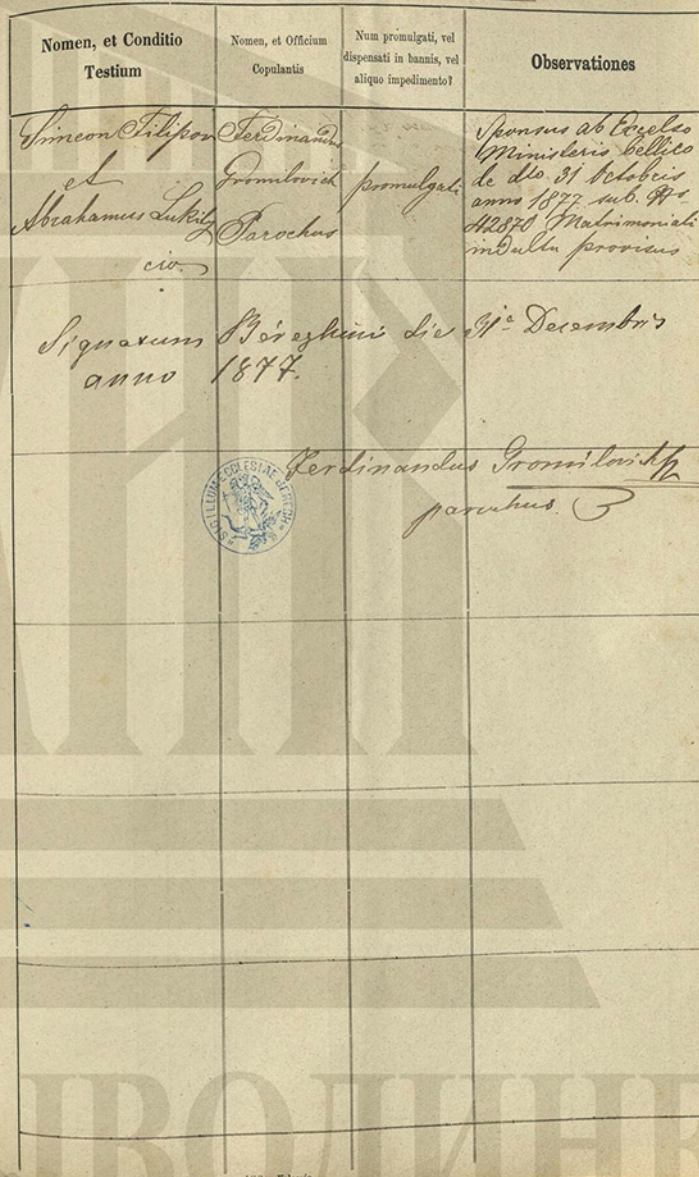 Nomen, et Conditio
Testium
Nomen, et Officium
Copulantis
Num promulgati, vel
dispensati in bannis, vel
aliquo impedimento?
Observationes
Simeon Filipov
et
Abrahamus Lukity
civ.
Ferdinandus
Gromilovich
Parochus
promulgati
Sponsus ab Excelso
Ministeris bellico
de dto 31 Octobris
anno 1877 sub. No
42870 Matrimoniali
indultu provisus
Signatum Béreghini die 31a Decembris
anno 1877.
Ferdinandus Gromilovich
parochus
SIGILLUM ECCLESIAE BEREGH